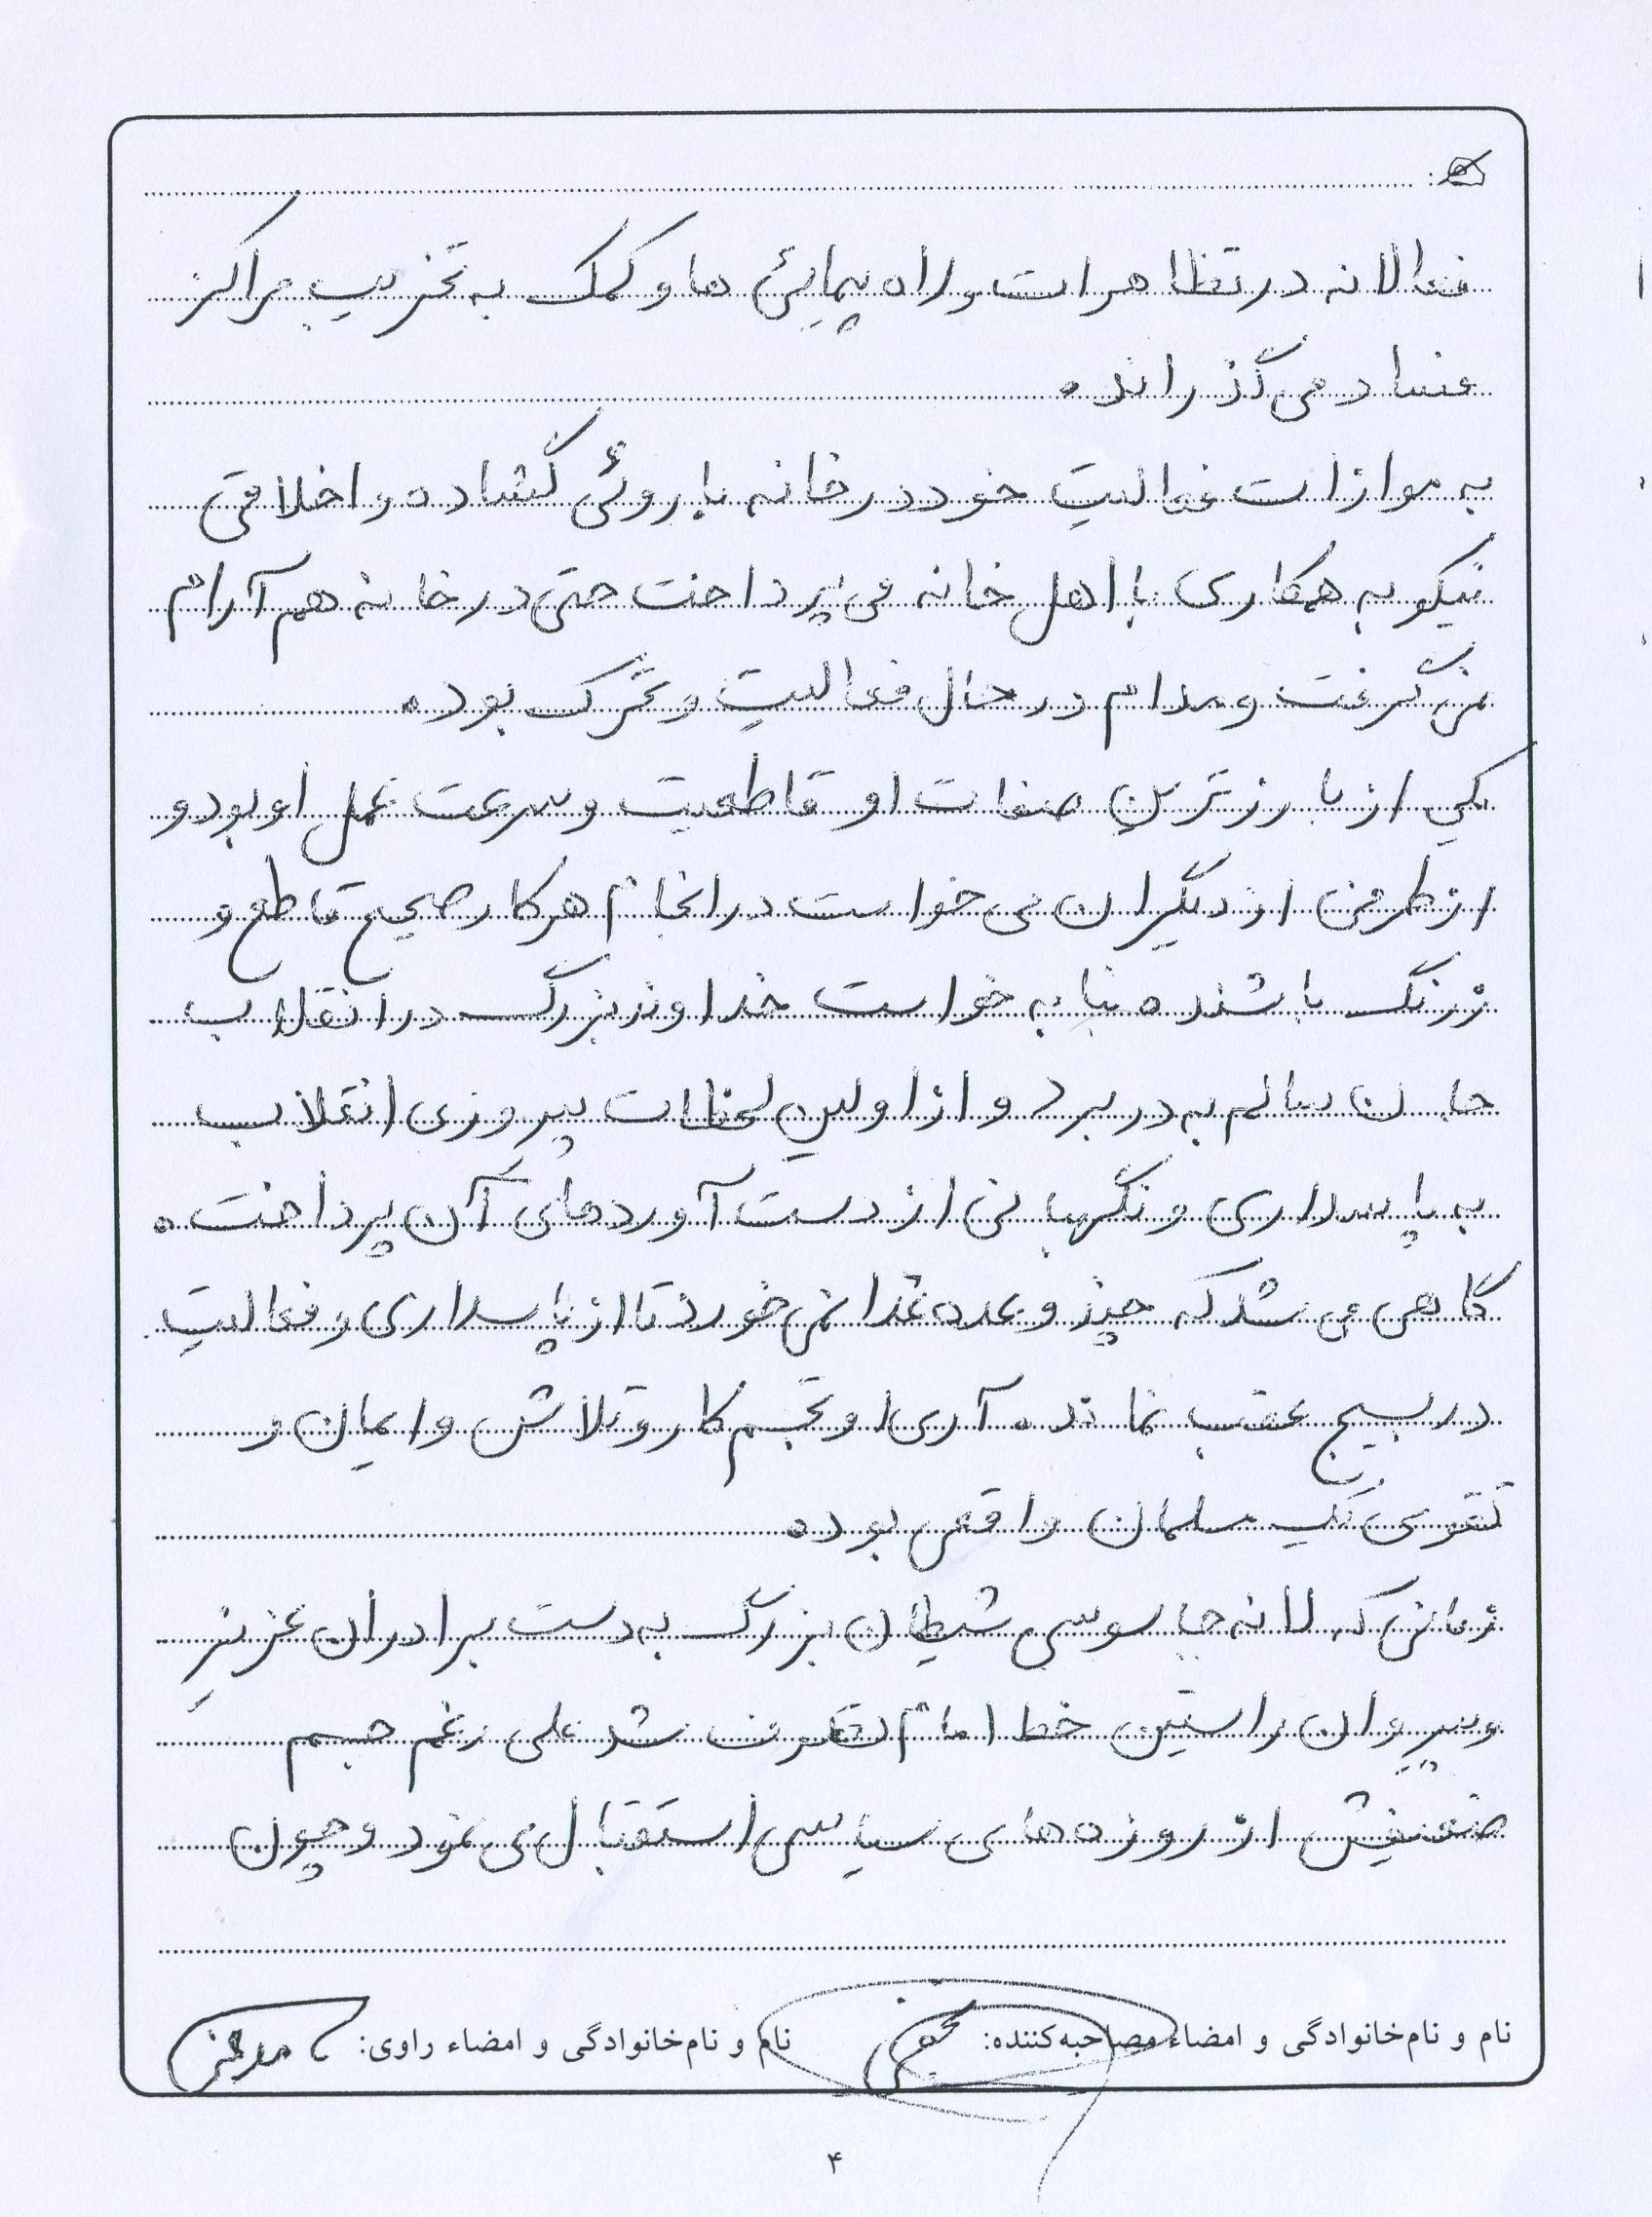 فعالانه در تظاهرات و راه پیمائی ها و کمک به تخریب مراکز
فساد می گذراند.
به موازات فعالیت خود در خانه با روئی گشاده و اخلاقی
نیکو به همکاری با اهل خانه می پرداخت حتی در خانه هم آرام
نمی گرفت و مدام در حال فعالیت و تحرک بود.
یکی از بارزترین صفات او قاطعیت و سرعت عمل او بود و
از طرفی از دیگران می خواست در انجام هر کار صحیح قاطع و
زرنگ باشند. بنا به خواست خداوند بزرگ در انقلاب
جان سالم به در برد و از اولین لحظات پیروزی انقلاب
به پاسداری و نگهبانی از دست آوردهای آن پرداخت.
گاهی می شد که چند وعده غذا نمی خورد تا از پاسداری و فعالیت
در بسیج عقب نماند. آری او تجسم کار و تلاش و ایمان و
تقوی یک مسلمان واقعی بود.
زمانی که لانه جاسوسی شیطان بزرگ به دست برادران عزیز
و پیروان راستین خط امام تصرف شد علی رغم جسم
ضعیفش از روزه های سیاسی استقبال می نمود و چون
نام و نام‌خانوادگی و امضاء مصاحبه‌کننده:
نام و نام‌خانوادگی و امضاء راوی:
۴